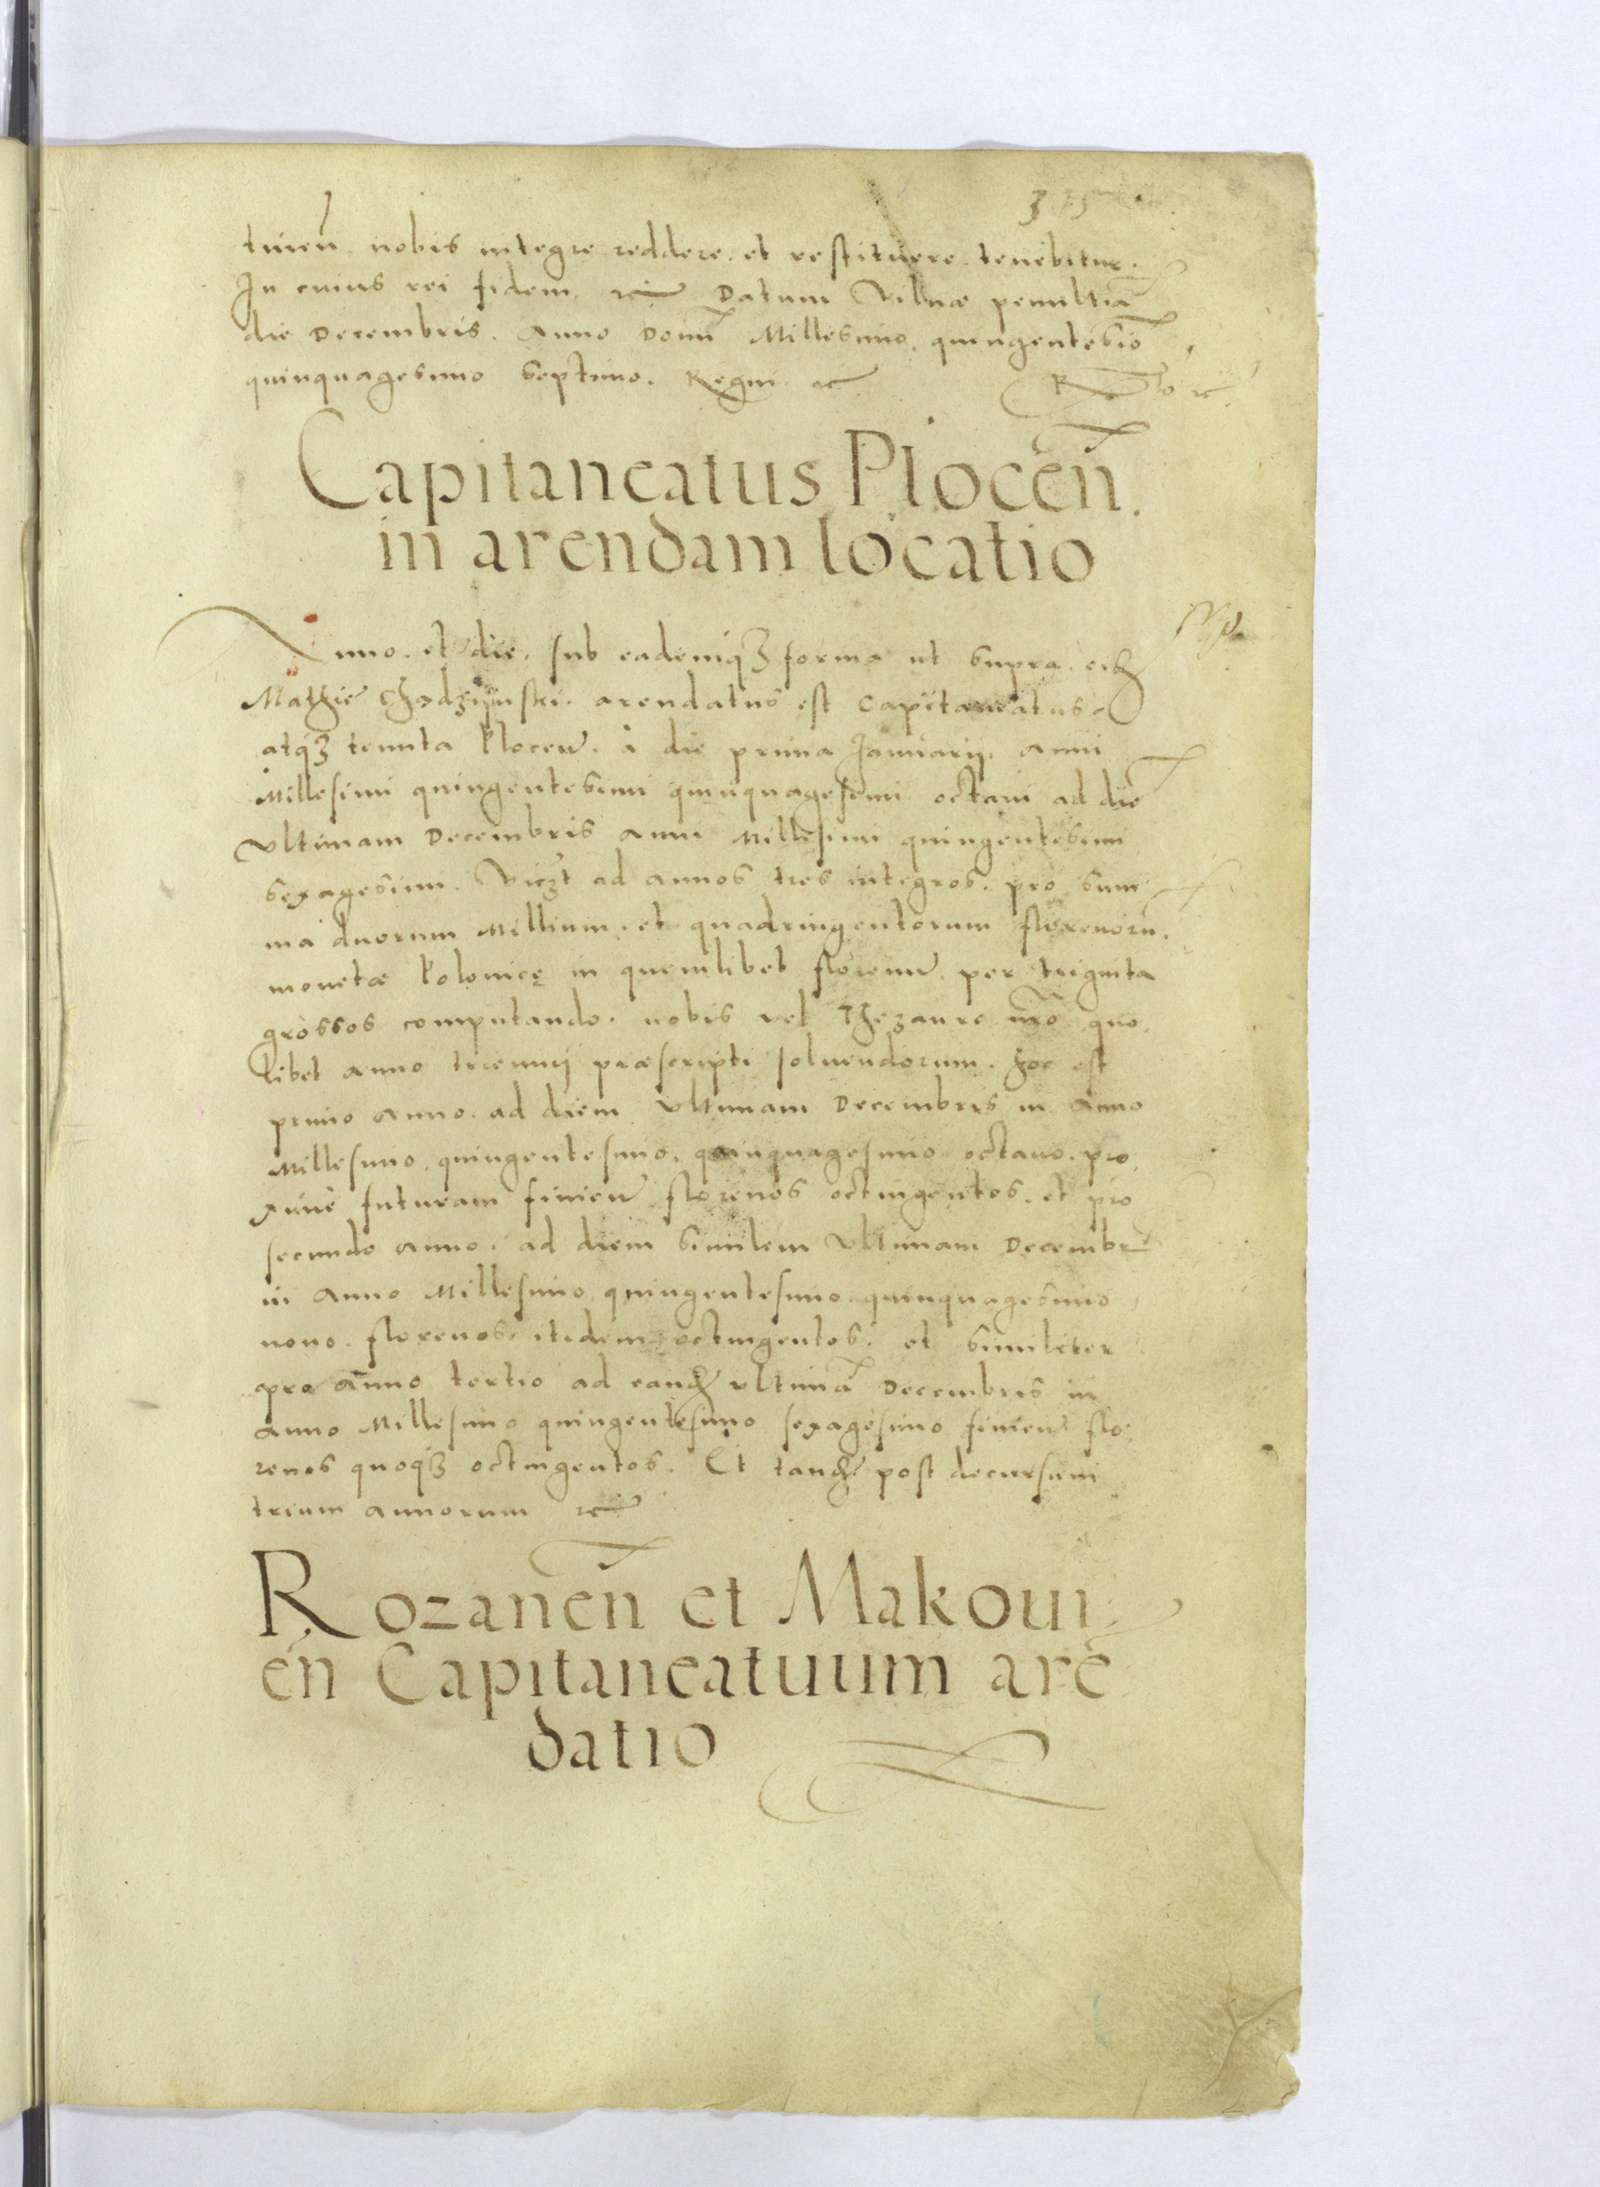 tinen nobis integre reddere et restituere tenebitur.
In cuius rei fidem rc Datum Vilnæ penultiã
die Decembris. Anno Domĩ Millesimo. quingentesiõ
quinquagesimo septimo. Regni rc
Capitaneatus Plocen̄.
in arendam locatio
Anno. et die. sub eademq3 forma ut supra. eid
Mathie arendatus est Capitaneatus
atq3 tenuta Plocen̄. à die prima Januarij. anni
Millesimi quingentesimi quinquagesimi octaui ad diẽ
vltimam Decembris anni Millesimi quingentesimi
sexagesimi. Vicz̄t ad annos tres integros. pro sum
ma duorum Millium. et quadringentorum florenorũ.
monetæ Polonicę in quemlibet florenū per triginta
grossos computando. nobis vel Thezauro nr̃o quo
libet anno triennij præscripti soluendorum. hoc est
primo anno. ad diem vltimam Decembris in anno
Millesimo. quingentesimo. quinquagesimo octauo. pro
xime futuram finien̄ florenos octingentos. et pro
secundo anno. ad diem similem vltimam Decembr̄
in anno Millesimo quingentesimo quinquagesimo
nono. florenos. itidem octingentos. et similiter
pro anno tertio ad eand vltimã Decembris in
anno Millesimo quingentesimo sexagesimo finien̄ flo
renos quoq3 octingentos. Et tand post decursum
trium annorum rc
Rozanen̄ et Makoui
en̄ Capitaneatuum arẽ
datio